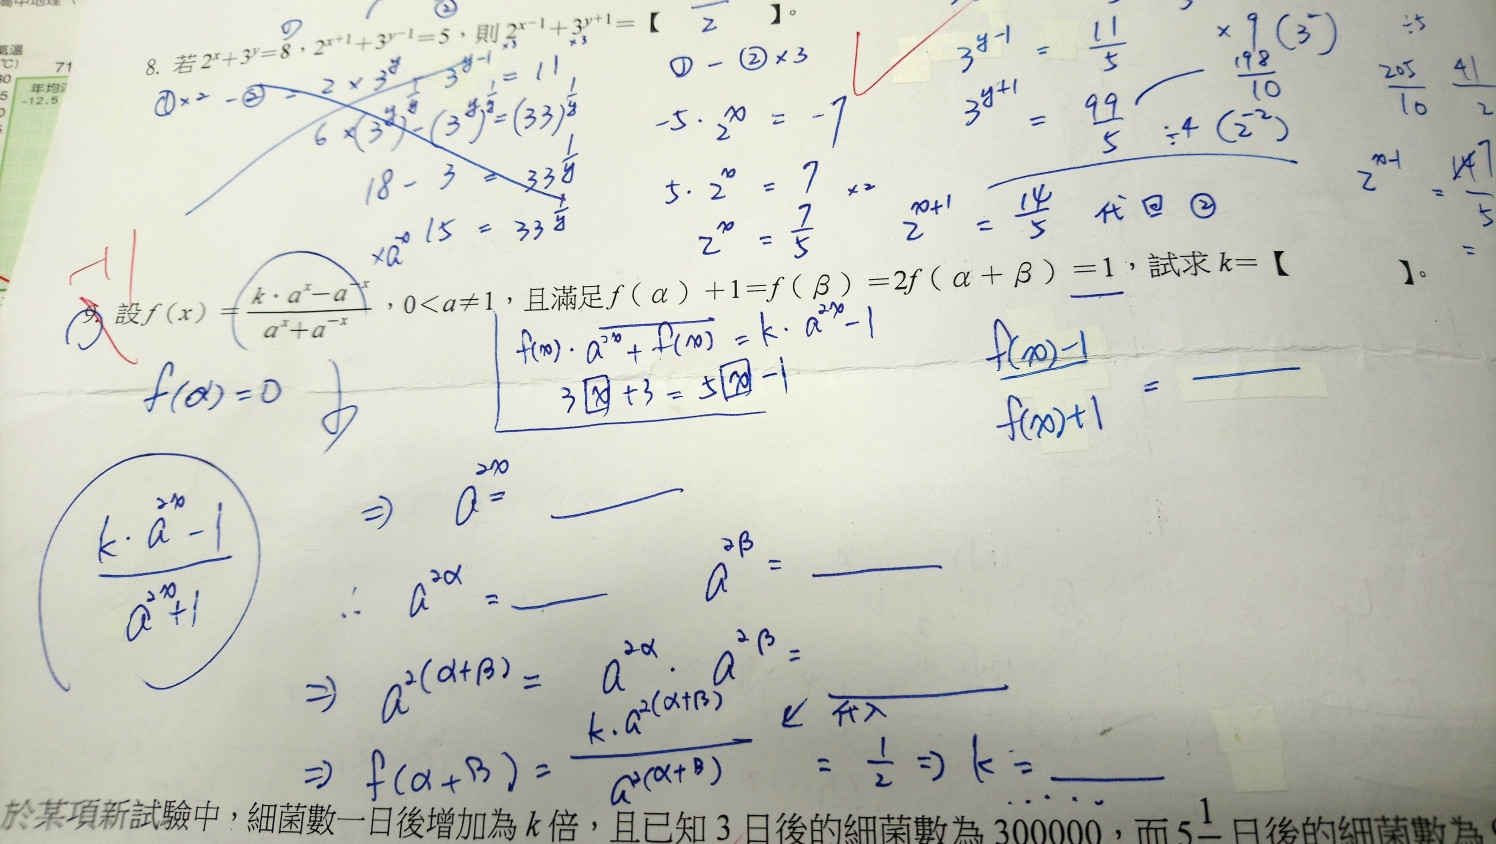 氣溫
71
年均溫
-12.5
8. 若2^x+3^y=8，2^{x+1}+3^{y-1}=5，則2^{x-1}+3^{y+1}=【 2 】。
①×2 - ② = 2×3^y - 3^{y-1} = 11
18 - 3 = 33^{1/y}
15 = 33^{1/y}
① - ②×3
-5·2^x = -7
5·2^x = 7 ×2
2^x = 7/5
2^{x+1} = 14/5 代回②
3^{y-1} = 11/5 ×9
3^{y+1} = 99/5 ÷4 (2^{-2})
198/10
205/10
41/2
÷5
2^{x-1} =
×a^x
9. 設f(x)=(k·a^x-a^{-x})/(a^x+a^{-x})，0<a≠1，且滿足f(α)+1=f(β)=2f(α+β)=1，試求k=【 】。
f(α)=0
f(x)·a^{2x}+f(x)=k·a^{2x}-1
3x+3=5x-1
(f(x)-1)/(f(x)+1) =
(k·a^{2x}-1)/(a^{2x}+1)
⇒ a^{2x}=
∴ a^{2α} = a^{2β} =
⇒ a^{2(α+β)} = a^{2α}·a^{2β} =
代入
⇒ f(α+β) = (k·a^{2(α+β)})/(a^{2(α+β)}) = 1/2 ⇒ k =
於某項新試驗中，細菌數一日後增加為k倍，且已知3日後的細菌數為300000，而5 1 日後的細菌數為